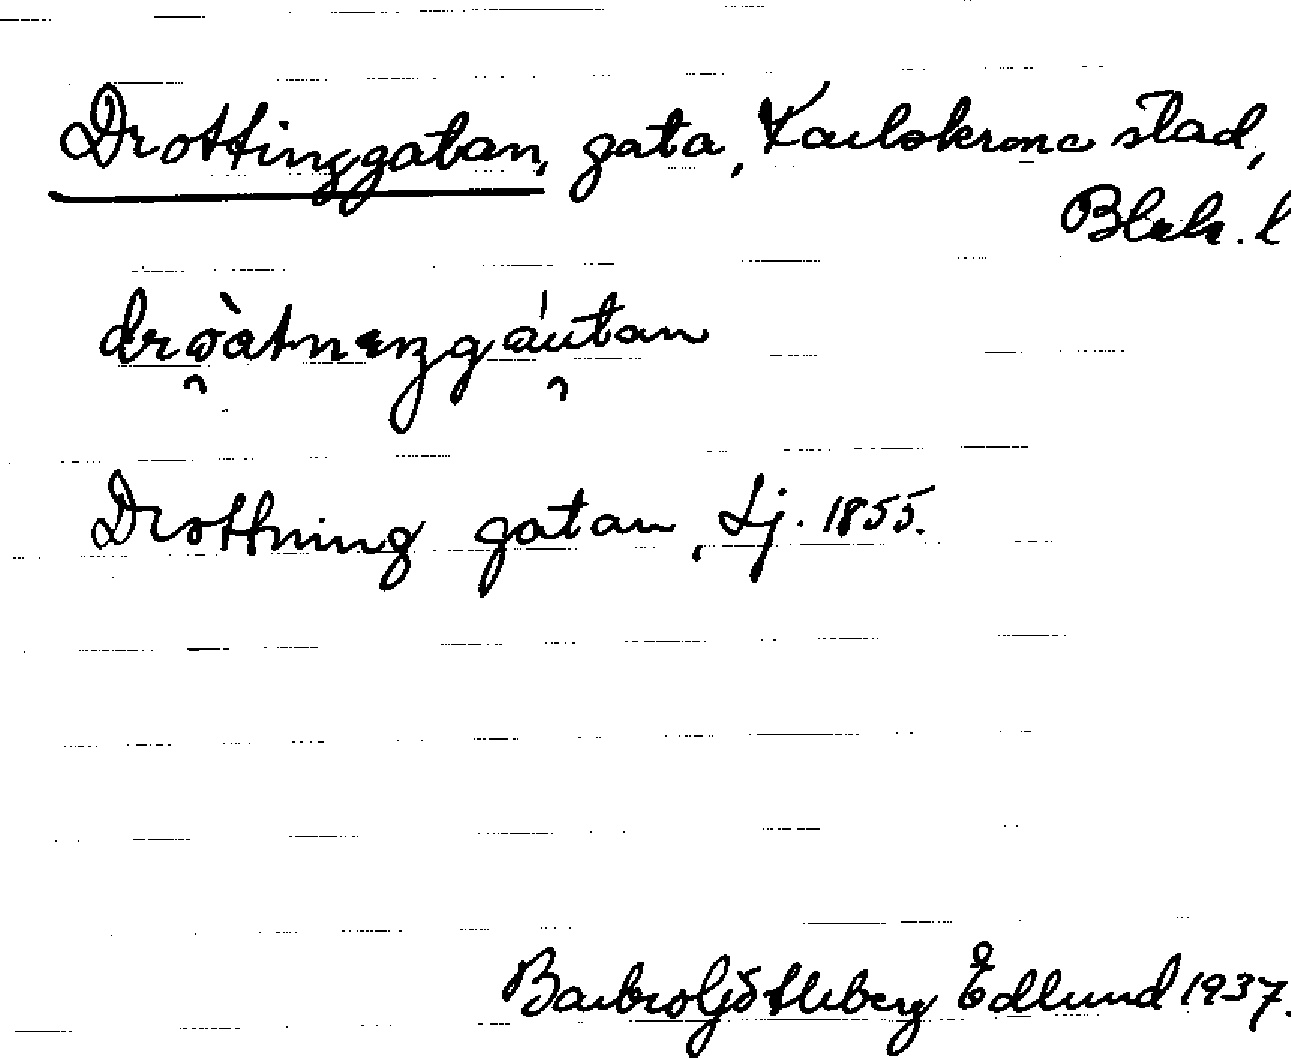 Drottinggatan, gata, Karlskrona stad,
Blek. l
Drottning gatan, Lj. 1855.
Barbro Edlund 1937.